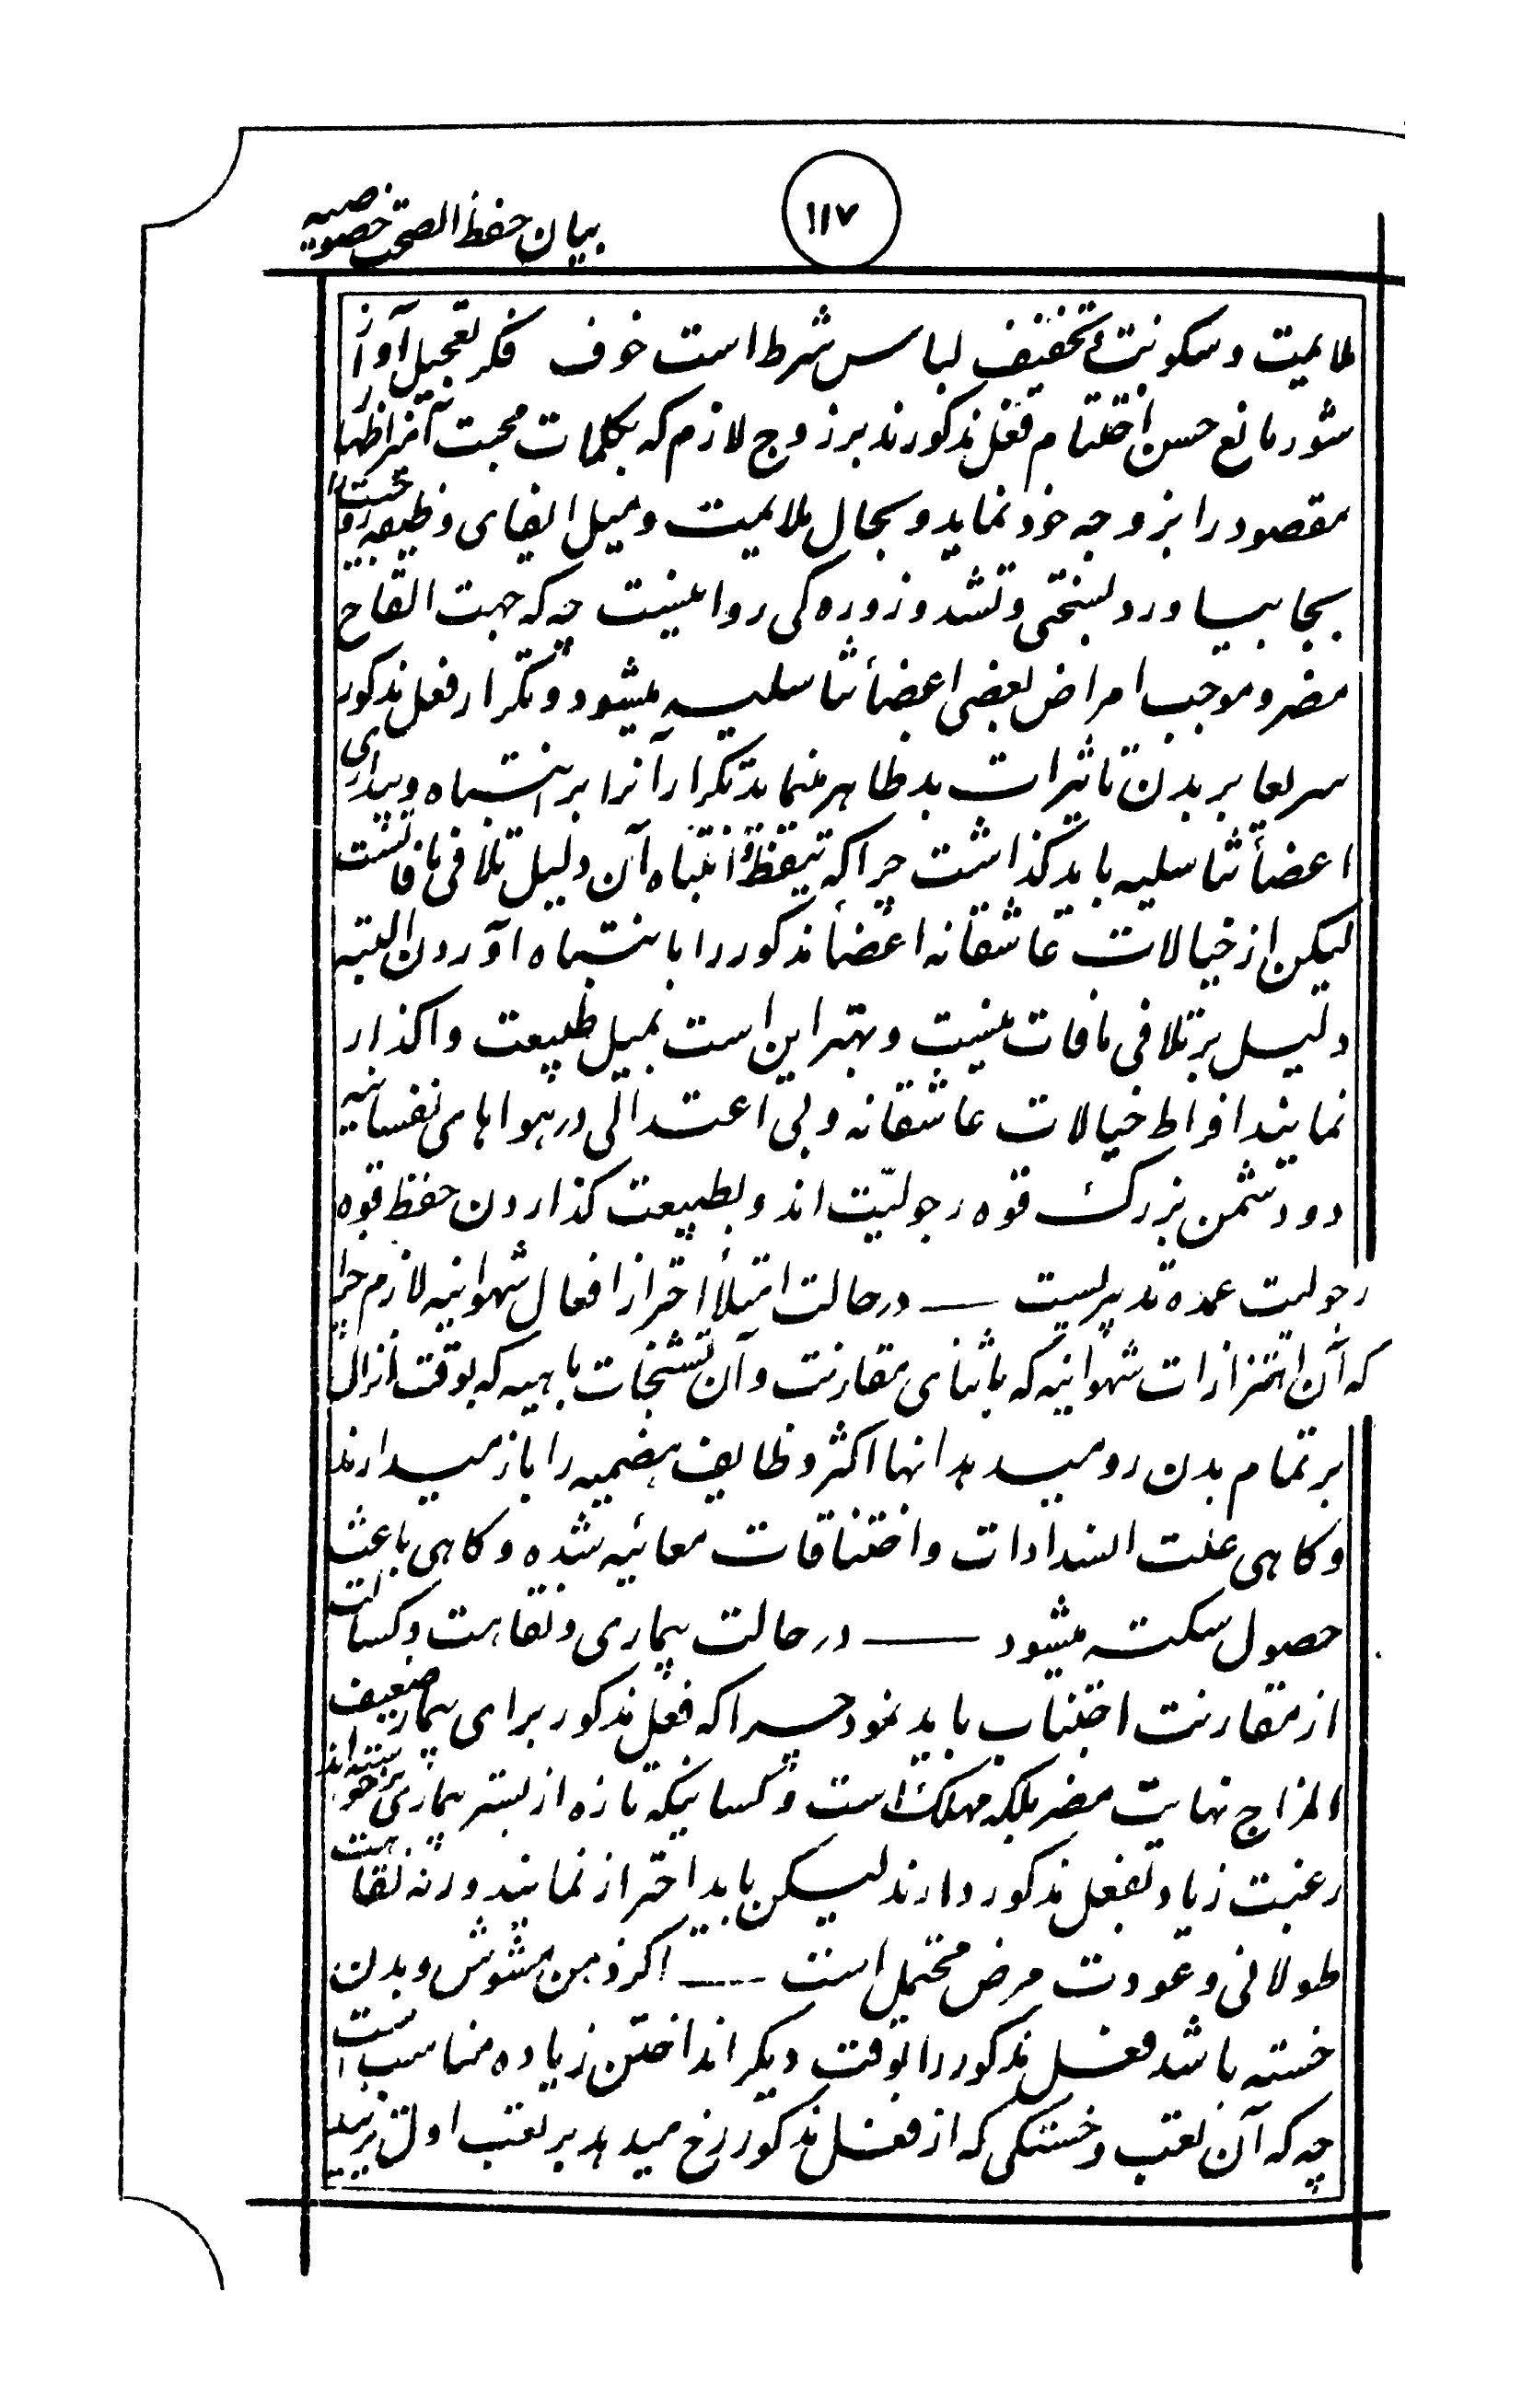 ۱۱۷
بیان حفظ الصحت خصوصیه
ملایمیت و سکونت و تخفیف لباس شرط است خوف فکر تعجیل آواز
شور مانع حسن اختتام فعل مذکورند بر زوج لازم که بکلمات محبت آمیز اظهار
مقصود را بزوجه خود نماید و بحال ملایمیت و میل ایفای وظیفه زوجیت را
بجا بیاورد لسختی و تشدد و زوره کی روا نیست چه که جهت القاح
مضر و موجب امراض بعضی اعضأ تناسلیه میشود و تکرار فعل مذکور
سریعا بر بدن تاثیرات بد ظاهر مینماید تکرار آنرا بر انتباه و بیداری
اعضأ تناسلیه باید گذاشت چرا که تیقظ و انتباه آن دلیل تلافی مافاتست
لیکن از خیالات عاشقانه اعضأ مذکور را بانتباه آوردن البته
دلیل بر تلافی مافات نیست و بهتر این است بمیل طبیعت واگذار
نمایند افراط خیالات عاشقانه و بی اعتدالی در هواهای نفسانیه
دو دشمن بزرک قوه رجولیّت اند و بطبیعت گذاردن حفظ قوه
رجولیت عمده تدبیریست — در حالت امتلأ احتراز افعال شهوانیه لازم چرا
که آن اهتزازات شهوانیه که باثنای مقارنت و آن تشنجات باهیه که بوقت انزال
بر تمام بدن رو میدهد انها اکثر وظایف هضمیه را باز میدارند
و کاهی علت انسدادات و اختناقات معائیه شده و کاهی باعث
حصول سکته میشود — در حالت بیماری و نقاهت و کسالت
از مقارنت اجتناب باید نمود چرا که فعل مذکور برای بیمار ضعیف
المزاج نهایت مضر بلکه مهلک است و کسانیکه تازه از بستر بیماری برخواسته اند
رغبت زیاد بفعل مذکور دارند لیکن باید احتراز نمایند ورنه نقاهت
طولانی و عودت مرض محتمل است — اکر ذهن مشوش و بدن
خسته باشد فعل مذکور را بوقت دیکر انداختن زیاده مناسب است
چه که آن تعب و خستکی که از فعل مذکور رخ میدهد بر تعب اولی